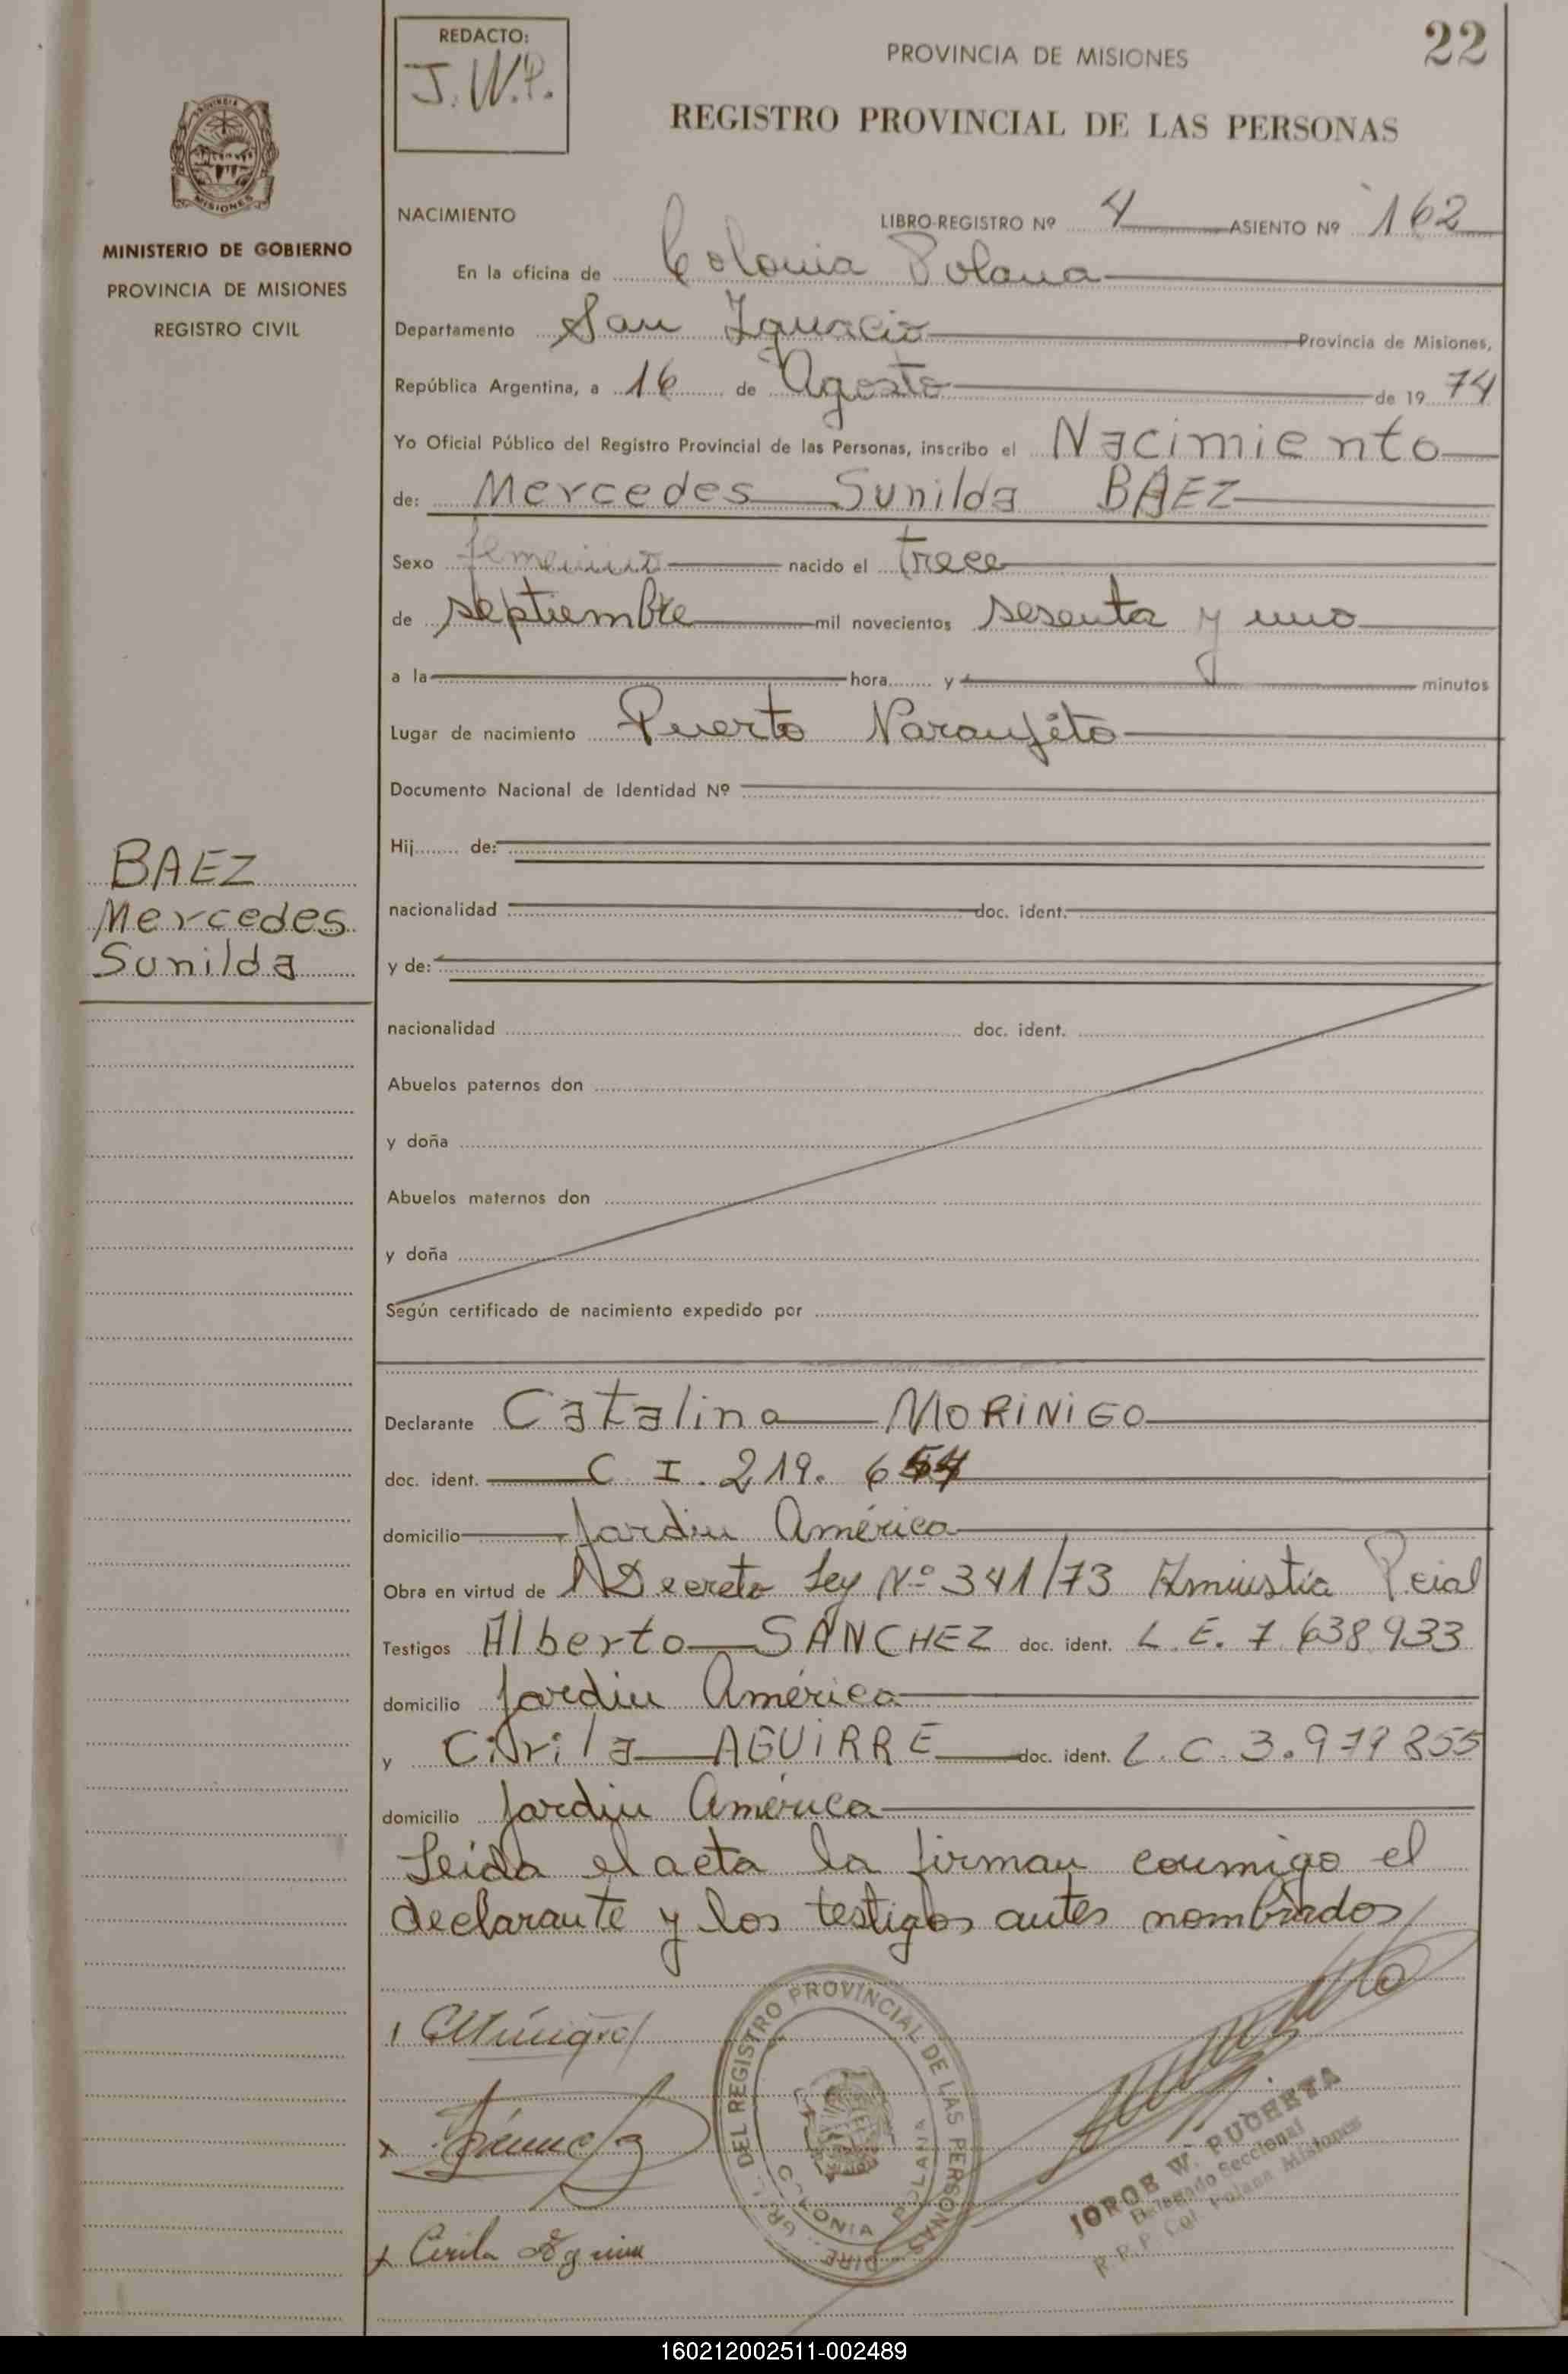 REDACTO:
J. W. P.
PROVINCIA DE MISIONES
22
REGISTRO PROVINCIAL DE LAS PERSONAS
MISIONES
MINISTERIO DE GOBIERNO
PROVINCIA DE MISIONES
REGISTRO CIVIL
NACIMIENTO LIBRO-REGISTRO Nº 4 ASIENTO Nº 162
En la oficina de Colonia Polana
Departamento San Ignacio Provincia de Misiones,
República Argentina, a 16 de Agosto de 19 74
Yo Oficial Público del Registro Provincial de las Personas, inscribo el Nacimiento
de: Mercedes Sunilda BAEZ
Sexo femenino nacido el trece
de septiembre mil novecientos sesenta y uno
a la hora y minutos
Lugar de nacimiento Puerto Naranjito
Documento Nacional de Identidad Nº
Hij de:
nacionalidad doc. ident.
y de:
BAEZ
Mercedes
Sunilda
nacionalidad doc. ident.
Abuelos paternos don
y doña
Abuelos maternos don
y doña
Según certificado de nacimiento expedido por
Declarante Catalina MORINIGO
doc. ident. C. I. 219.
domicilio Jardin América
Obra en virtud de Decreto Ley Nº 341/73 Amnistia Pcial
Testigos Alberto SANCHEZ doc. ident. L. E. 7 638 933
domicilio Jardin América
y Cirila AGUIRRE doc. ident. L. C. 3.979 855
domicilio Jardin América
Leida el acta la firman conmigo el
declarante y los testigos antes nombrados
Cirila Aguirre
DIRE. GRAL. DEL REGISTRO PROVINCIAL DE LAS PERSONAS
COLONIA POLANA
JORGE W. PUCHETA
Delegado Seccional
R. P. P. Col. Polana Misiones
160212002511-002489